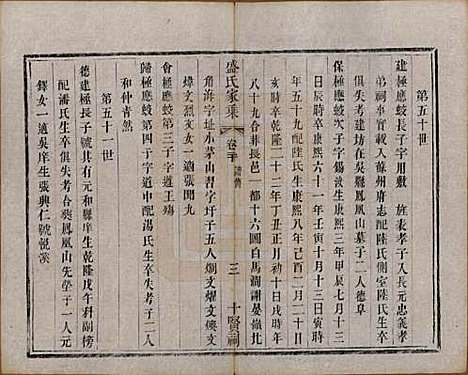 第五十世
建極應蛟長子字用敷 旌表孝子入長元忠義孝
弟祠奉憲載入蘇州府志配陸氏側室陸氏生卒
俱失考建極合葬鳳凰山墓子二人德阜
保極應蛟次子字錫
日辰時卒康熙六十一年壬寅十月十三日寅時
年五十九配陸氏生康熙八年己酉二月二十日
亥時卒乾隆二十二年丁丑正月初十日戌時年
八十九合葬長邑一都十六圖白馬澗謝晏嶺北
盛氏家乘 卷二十
三 十賢祠
角海字址小茅山習字圩子五人炯文燿文奐文
文女一適張聞九
會極應蛟第三子字道王殤
歸極應蛟第四子字道中配湯氏生卒失考子二人
和仲青然
第五十一世
德建極長子號具其元和縣庠生乾隆戊午科副榜
配潘氏生卒俱失考合葬鳳凰山先塋子一人元
鐸女一適吳庠生張興仁號說溪